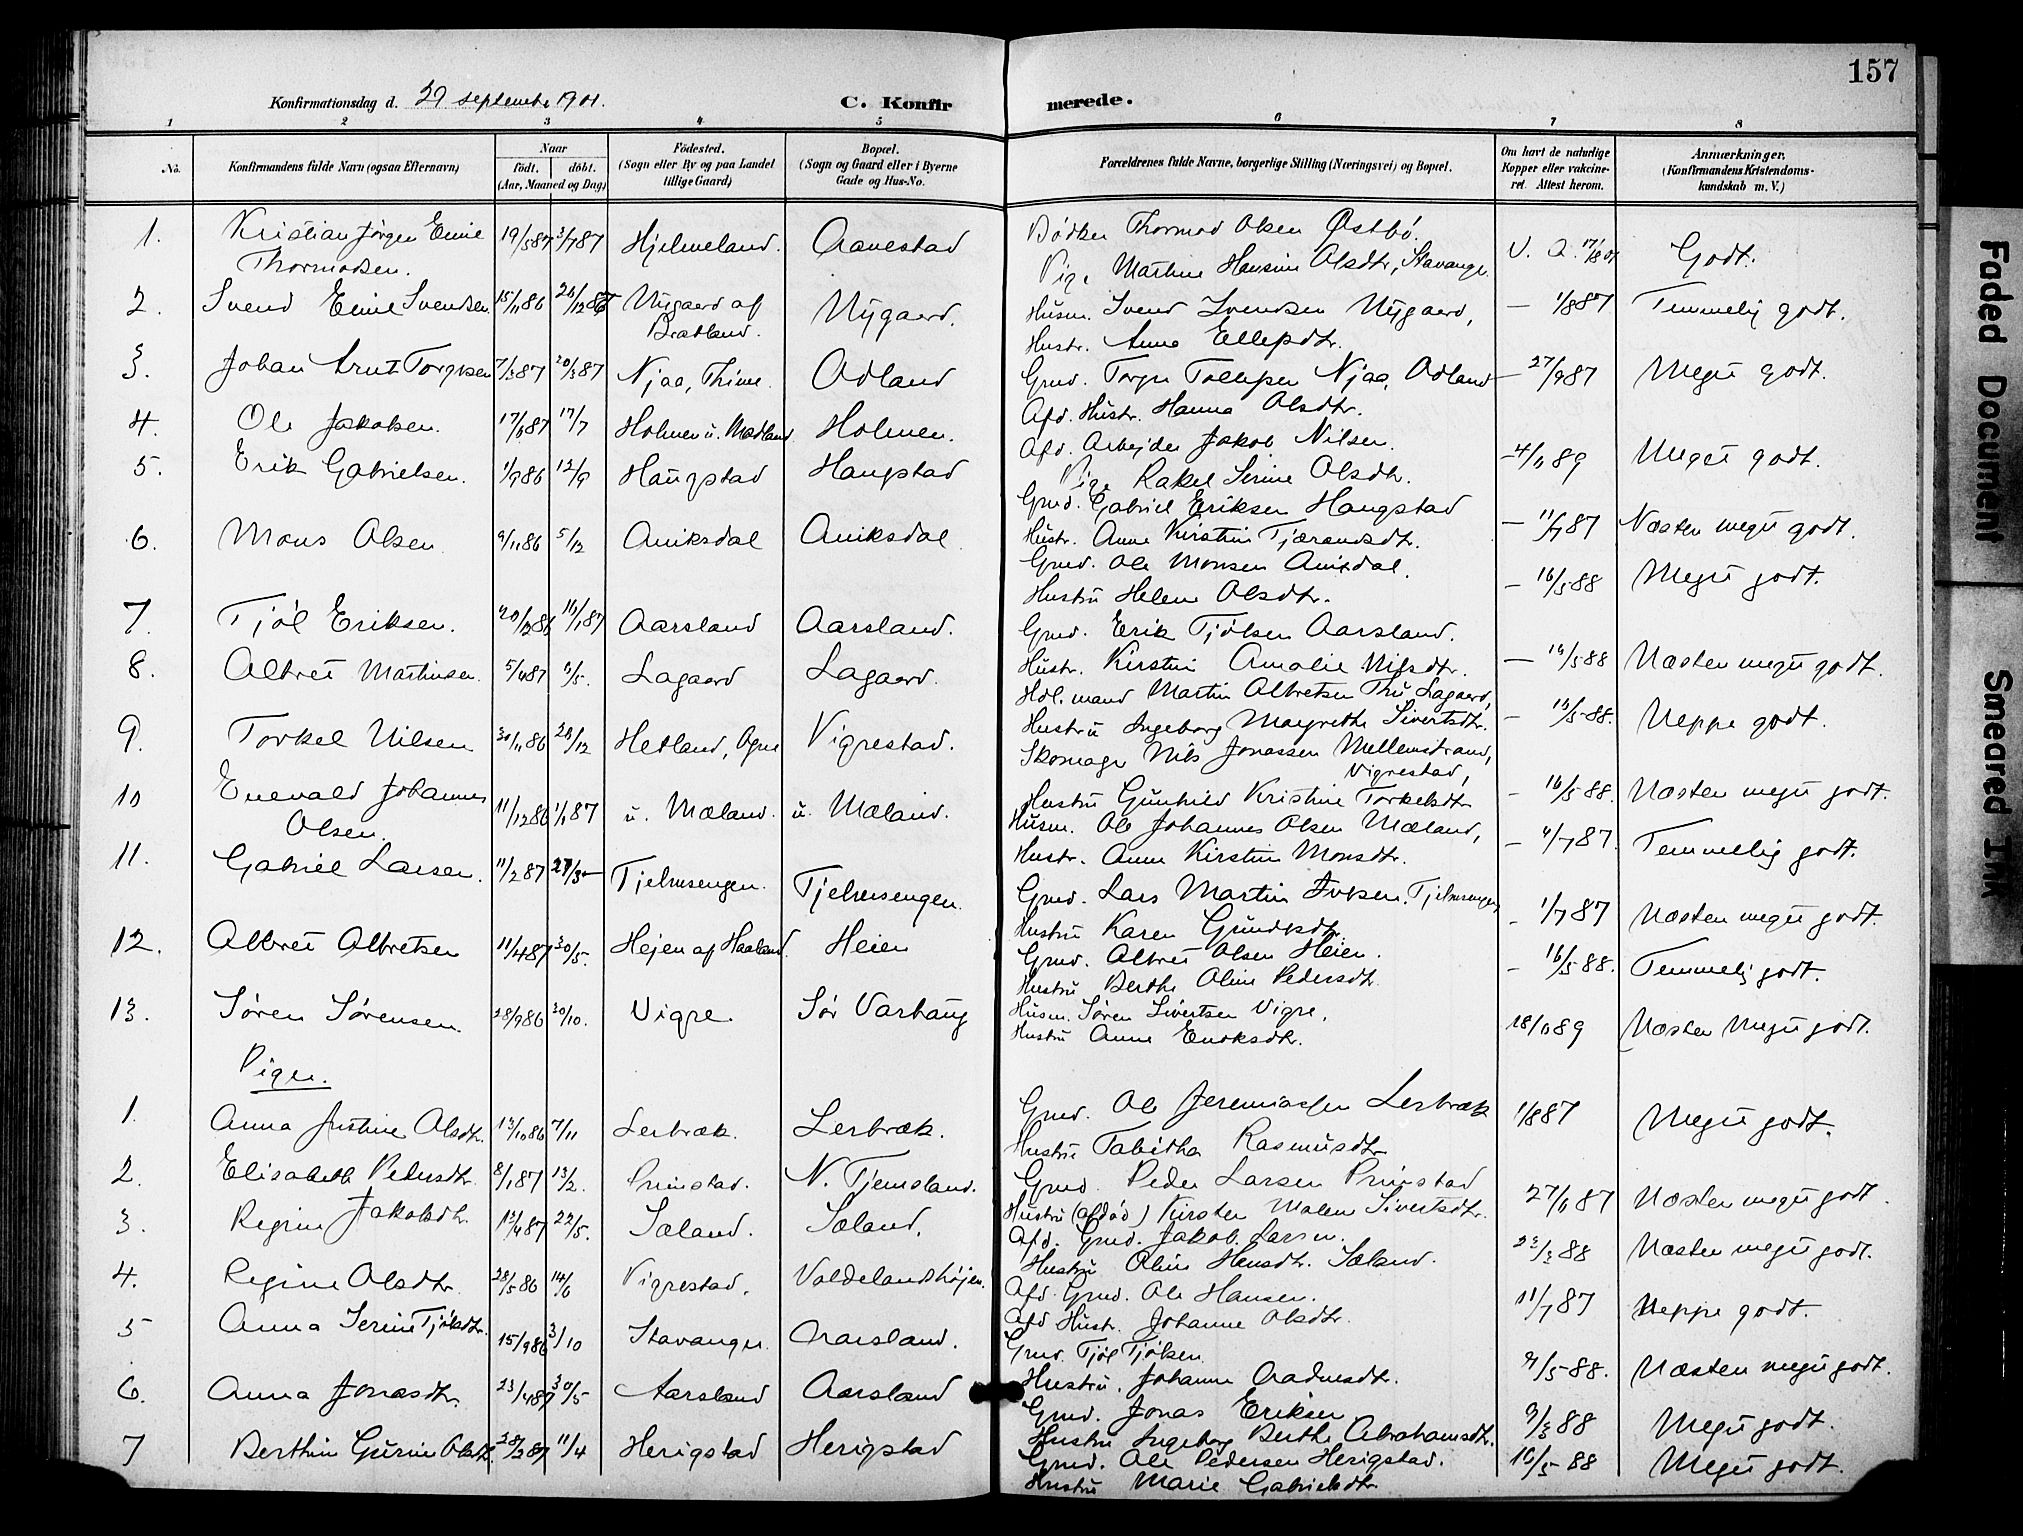 157
Konfirmationsdag d. 29 septembr 1901.
C. Konfirmerede.
1 2 3 4 5 6 7 8
No.
Konfirmandens fulde Navn (ogsaa Efternavn)
Naar
født. døbt.
(Aar, Maaned og Dag)
Fødested.
(Sogn eller By og paa Landet
tillige Gaard)
Bopæl.
(Sogn og Gaard eller i Byerne
Gade og Hus-No.
Forældrenes fulde Navne, borgerlige Stilling (Næringsvei) og Bopæl.
Om havt de naturlige
Kopper eller vakcine-
ret. Attest herom.
Anmærkninger.
(Konfirmandens Kristendoms-
kundskab m. V.)
1. Kristian Jørgen Emil Thormodsen. 19/5 87 3/7 87 Hjelmeland. Aanestad
Bødker Thormod Olsen Østbø.
Pige Martine Hansine Olsdtr, Stavanger.
V. A. 17/8 01 Godt.
2. Svend Emil Svendsen. 15/11 86 26/12 86 Nygaard af Bratland. Nygaard.
Husm. Svend Svendsen Nygaard,
Hustr. Anna Ellefsdtr.
— 1/8 87 Temmelig godt.
3. Johan Arnt Torgersen 7/3 87 20/3 87 Njaa, Thime. Odland
Grmd. Torger Tollefsen Njaa, Odland
Afd. Hustr. Hanna Olsdtr.
— 27/9 87 Meget godt.
4. Ole Jakobsen. 17/6 87 17/7 Holmen u. Mødland Holmen.
Afd. Arbejder Jakob Nilsen.
Pige Rakel Serine Olsdtr.
— 4/11 89 Meget godt.
5. Erik Gabrielsen. 1/9 86 12/9 Haugstad Haugstad
Grmd. Gabriel Eriksen Haugstad
Hustr. Anne Kirstine Tjærandsdtr.
— 11/7 87 Næsten meget godt.
6. Mons Olsen 9/11 86 5/12 Aniksdal Aniksdal
Grmd. Ole Monsen Aniksdal.
Hustru Helene Olsdtr.
— 16/5 88 Meget godt.
7. Tjøl Eriksen. 20/12 86 16/1 87 Aarsland Aarsland.
Grmd. Erik Tjølsen Aarsland.
Hustr. Kirstine Amalie Nilsdtr.
— 16/5 88 Næsten meget godt.
8. Albret Martinsen. 5/4 87 8/5. Lagaard Lagaard.
Hdl. mand Martin Albretsen Thu Lagaard,
Hustru Ingeborg Margrethe Sivertsdtr.
— 16/5 88. Neppe godt.
9. Torkel Nilsen 30/11 86 26/12 Hetland, Ogne Vigrestad.
Skomager Nils Jonassen Mellemstrand,
Vigrestad,
Hustru Gunhild Kristine Torkelsdtr
— 16/5 88. Næsten meget godt.
10 Enevald Johannes Olsen. 11/12 86 1/1 87 u. Mæland. u. Mæland.
Husm. Ole Johannes Olsen Mæland,
Hustr. Anne Kirstine Monsdtr.
— 4/7 87. Temmelig godt.
11. Gabriel Larsen. 11/2 87 27/3 Tjelmsengen. Tjelmsengen.
Grmd. Lars Martin Ivesen. Tjelmsengen,
Hustru Karen
— 1/7 87 Næsten meget godt.
12. Albret Albretsen 11/4 87 30/5. Hejen af Haaland. Heien
Grmd. Albret Olsen Heien.
Hustru Berthe Oline Pedersdtr.
— 16/5 88. Temmelig godt.
13. Søren Sørensen. 28/9 86 30/10. Vigre Sør Varhaug
Husm. Søren Sivertsen Vigre.
Hustru Anne Enoksdtr.
18/11 89 Næsten Meget godt.
Piger.
1. Anna Justine Olsdtr. 13/10 86 7/11 Lerbræk. Lerbræk.
Grmd. Ole Jeremiassen Lerbræk
Hustru Tabitha Rasmusdtr
1/8 87 Meget godt.
2. Elisabeth Pedersdtr. 8/1 87 13/2. Primstad. N. Tjemsland.
Grmd. Peder Larsen Primstad
Hustru (afdød) Kirsten Malene Sivertsdtr.
27/6 87 Næsten meget godt.
3. Regine Jakobsdtr. 12/4 87 22/5. Sæland. Sæland.
Afd. Grmd. Jakob Larsen.
Hustru Oline Hansdtr. Sæland.
23/3 88 Næsten meget godt.
4. Regine Olsdtr. 28/5 86 14/6 Vigrestad. Voldelandshøjen.
Afd. Grmd. Ole Hansen.
Afd Hustr. Johanne Olsdtr.
11/7 87 Neppe godt.
5 Anna Serine Tjølsdtr. 15/9 86 3/10 Stavanger Aarsland.
Grmd. Tjøl Tjølsen
Hustru. Johanne Aadnesdtr.
9/5 88. Næsten meget godt.
6. Anna Jonasdtr. 23/4 87 30/5 Aarsland Aarsland
Grmd. Jonas Eriksen
Hustru Ingeborg Berthe Abrahamsdtr.
9/3 88 Meget godt.
7 Berthine Gurine Olsdtr. 28/2 87 11/4 Herigstad Herigstad
Grmd. Ole Pedersen Herigstad.
Hustru Marie Gabrielsdtr
16/5 88 Meget godt.
Faded Document
Smeared Ink